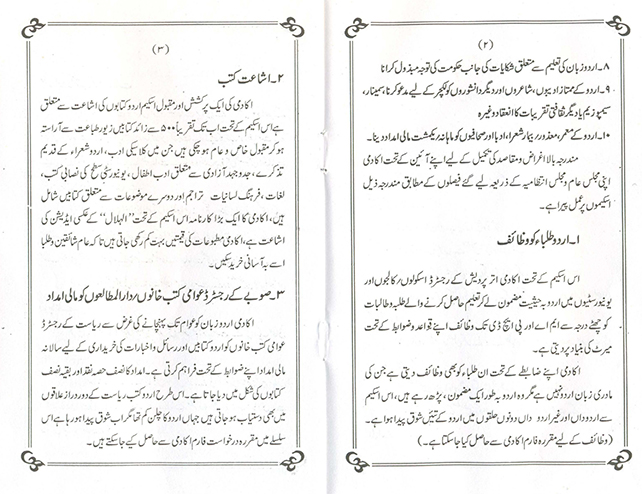 (۲)
۸۔ اردو زبان کی تعلیم سے متعلق شکایات کی جانب حکومت کی توجہ مبذول کرانا
۹۔ اردو کے ممتاز ادیبوں، شاعروں اور دیگر دانشوروں کو لکچر کے لیے مدعو کرنا، سمینار،
سمپوزیم یا دیگر ثقافتی تقریبات کا انعقاد وغیرہ
۱۰۔ اردو کے معمر، معذور، بیمار شعراء، ادبا اور صحافیوں کو ماہانہ یکمشت مالی امداد دینا۔
مندرجہ بالا اغراض و مقاصد کی تکمیل کے لیے اپنے آئین کے تحت اکادمی
اپنی مجلس عام و مجلس انتظامیہ کے ذریعہ لیے گئے فیصلوں کے مطابق مندرجہ ذیل
اسکیموں پر عمل پیرا ہے۔
۱۔ اردو طلباء کو وظائف
اس اسکیم کے تحت اکادمی اتر پردیش کے رجسٹرڈ اسکولوں؍کالجوں اور
یونیورسٹیوں میں اردو بہ حیثیت مضمون لے کر تعلیم حاصل کرنے والے طلبہ و طالبات
کو چھٹے درجہ سے ایم اے اور پی ایچ ڈی تک وظائف اپنے قواعد و ضوابط کے تحت
میرٹ کی بنیاد پر دیتی ہے۔
اکادمی اپنے ضابطے کے تحت ان طلباء کو بھی وظائف دیتی ہے جن کی
مادری زبان اردو نہیں ہے مگر وہ اردو بہ طور ایک مضمون، پڑھ رہے ہیں، اس اسکیم
سے اردو داں اور غیر اردو داں دونوں حلقوں میں اردو کے تئیں شوق پیدا ہوا ہے۔
(وظائف کے لیے مقررہ فارم اکادمی سے حاصل کیا جا سکتا ہے۔)
(۳)
۲۔ اشاعت کتب
اکادمی کی ایک پرکشش اور مقبول اسکیم اردو کتابوں کی اشاعت سے متعلق
ہے اس اسکیم کے تحت اب تک تقریباً ۵۰۰ سے زائد کتابیں زیور طباعت سے آراستہ
ہو کر مقبول خاص و عام ہو چکی ہیں جن میں کلاسیکی ادب، اردو شعراء کے قدیم
تذکرے، جدوجہد آزادی سے متعلق ادب اطفال، یونیورسٹی سطح کی نصابی کتب،
لغات، فرہنگ لسانیات تراجم اور دوسرے موضوعات سے متعلق کتابیں شامل
ہیں، اکادمی کا ایک بڑا کارنامہ اس اسکیم کے تحت "الہلال" کے عکسی ایڈیشن کی
اشاعت ہے، اکادمی مطبوعات کی قیمتیں بہت کم رکھی جاتی ہیں تاکہ عام شائقین و طلبا
اسے بہ آسانی خرید سکیں۔
۳۔ صوبے کے رجسٹرڈ عوامی کتب خانوں؍دارالمطالعوں کو مالی امداد
اکادمی اردو زبان کو عوام تک پہنچانے کی غرض سے ریاست کے رجسٹرڈ
عوامی کتب خانوں کو اردو کتابیں اور رسائل و اخبارات کی خریداری کے لیے سالانہ
مالی امداد اپنے ضوابط کے تحت فراہم کرتی ہے۔ امداد کا نصف حصہ نقد اور بقیہ نصف
کتابوں کی شکل میں دیا جاتا ہے۔ اس طرح اردو کتب ریاست کے دور دراز علاقوں
میں بھی دستیاب ہو جاتی ہیں جہاں اردو کا چلن کم تھا مگر اب شوق پیدا ہو رہا ہے اس
سلسلے میں مقررہ درخواست فارم اکادمی سے حاصل کیے جا سکتے ہیں۔